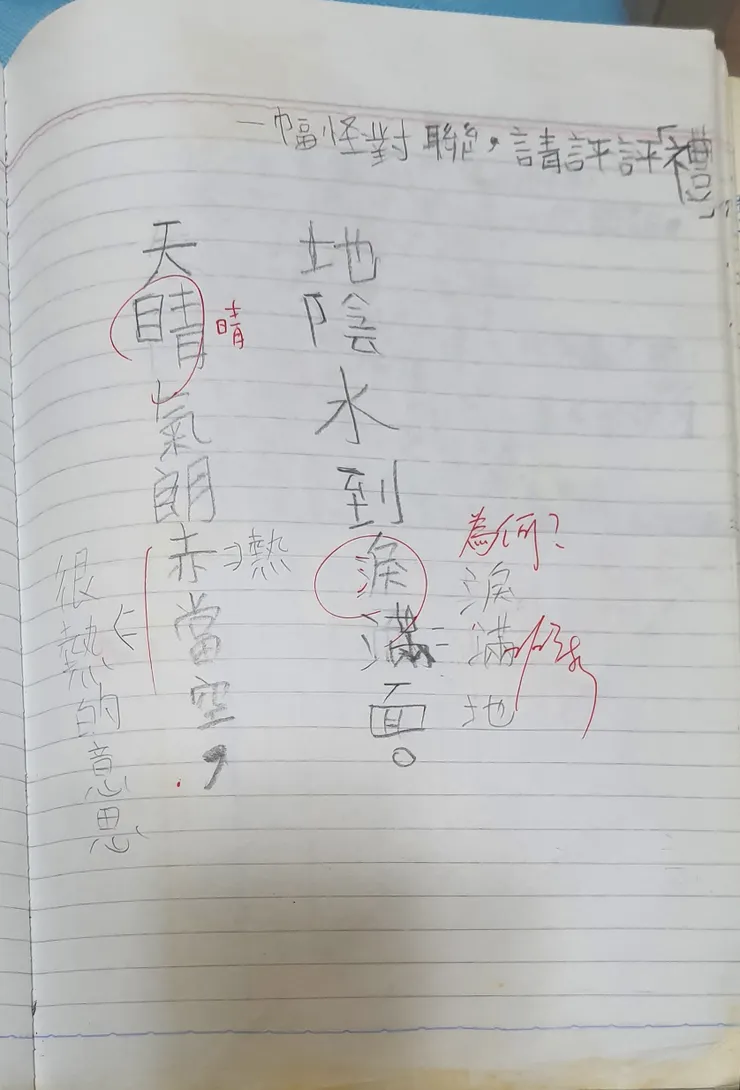 一幅怪對聯，請評評「禮」
天睛氣朗赤當空，
晴
熱
很熱的意思
地陰水到淚滿面。
為何？
淚滿地